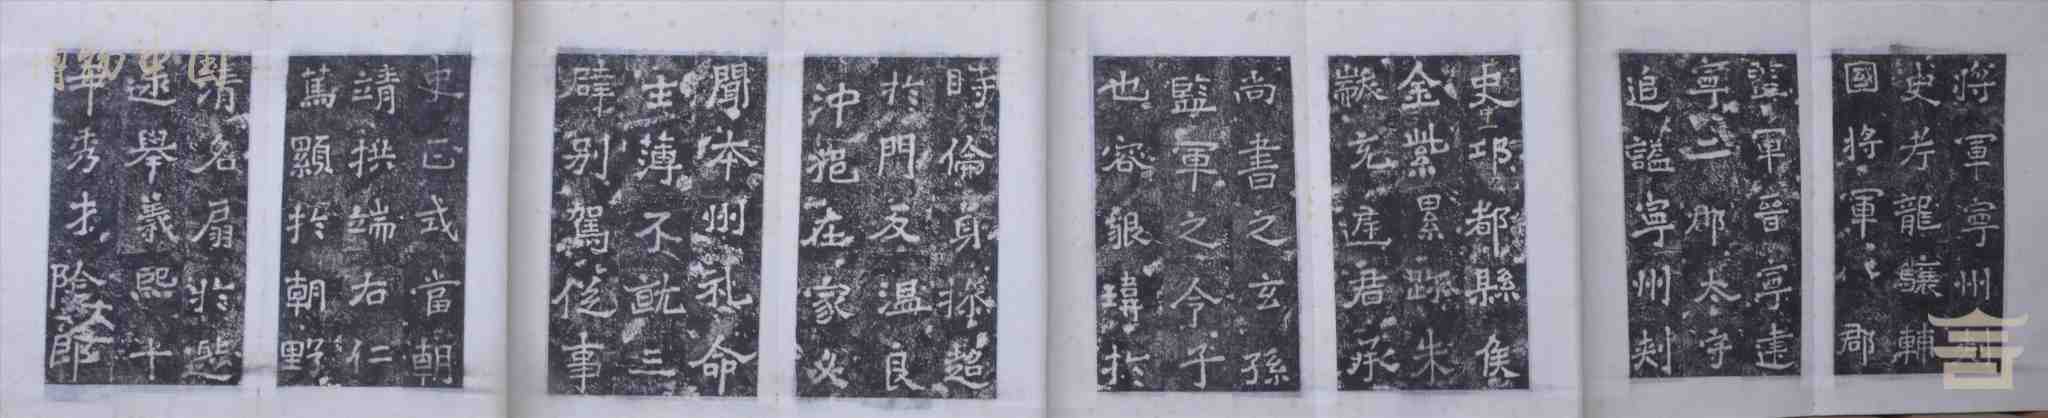 將軍寧州刺
史考龍驤輔
國將軍八郡
監軍晉寧建
寧二郡太守
追謚寧州刺
史邛都縣侯
金紫累跡朱
黻充庭君承
尚書之玄孫
監軍之令子
也容貌瑋於
時倫貞操超
於門友溫良
沖挹在家必
聞本州礼命
主薄不就三
辟別駕從事
史正式當朝
靖拱端右仁
篤顯於朝野
清名扇於遐
迩舉義熙十
年秀才除郎
博物中国